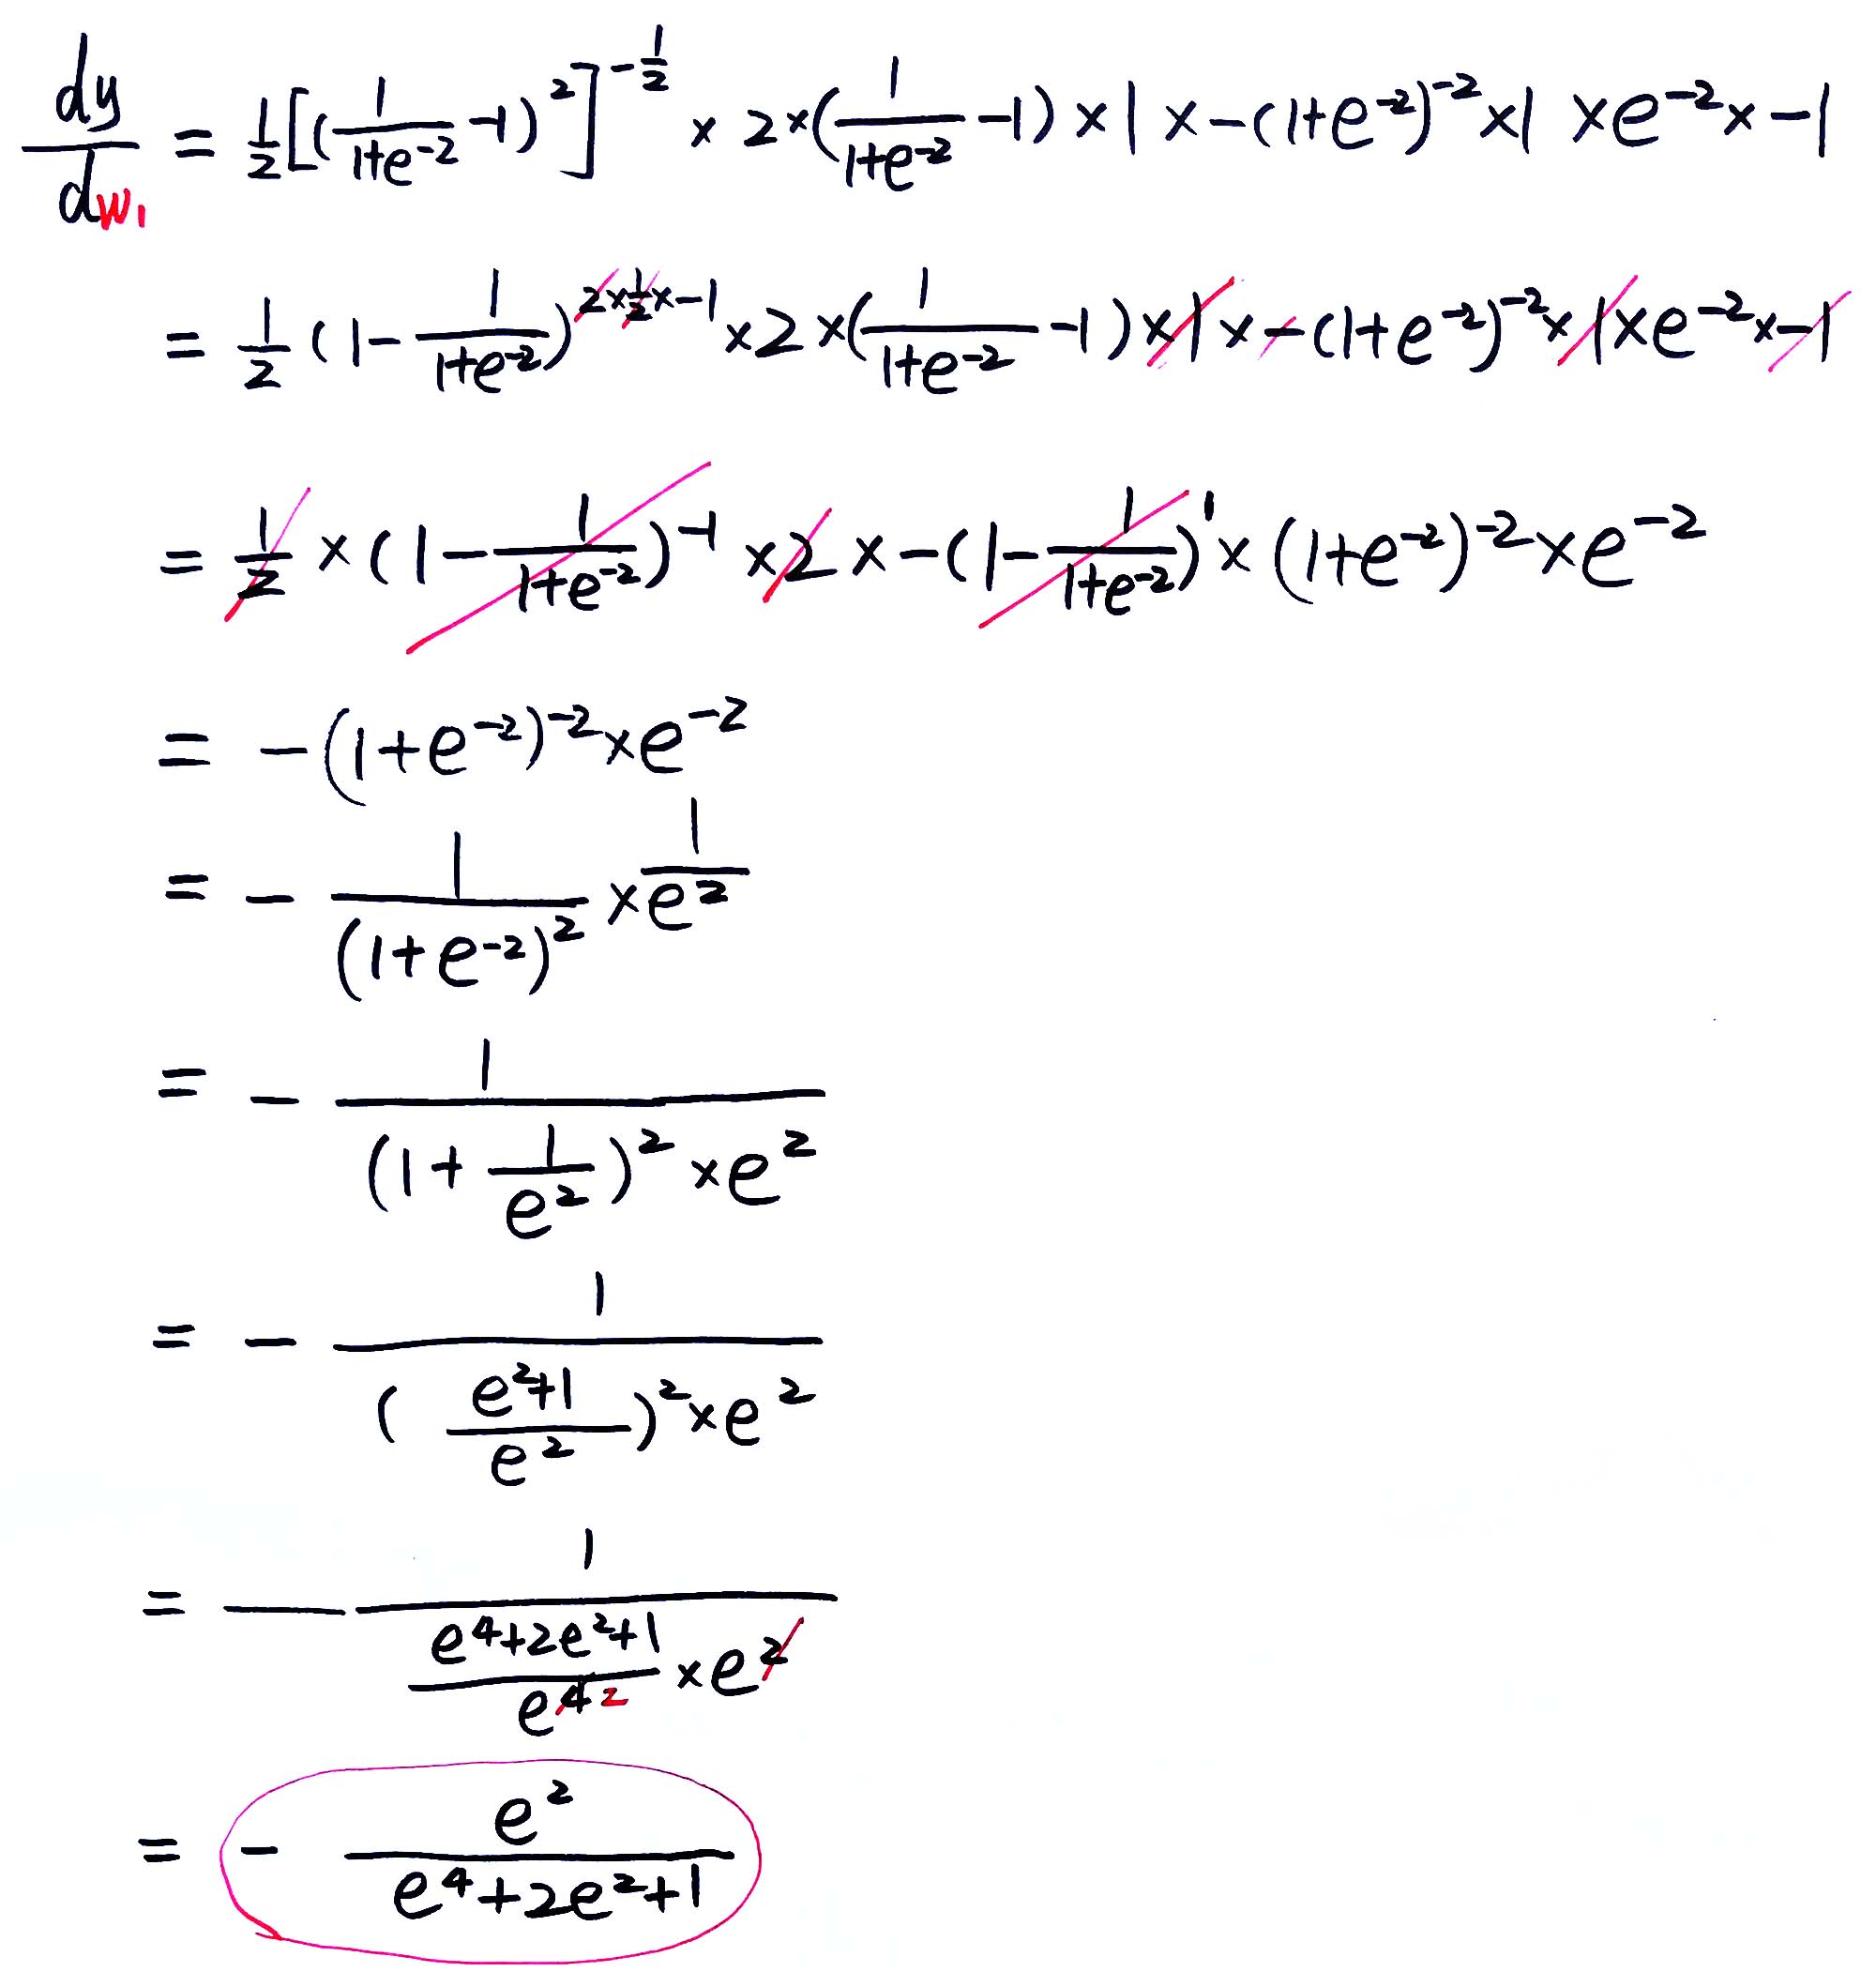 dy/dw₁ = ½[(1/(1+e⁻²) −1)²]^(−½) × 2×(1/(1+e⁻²) −1) × 1 × −(1+e⁻²)⁻² × 1 × e⁻² × −1
= ½ (1− 1/(1+e⁻²))^(2×½×−1) × 2 × (1/(1+e⁻²) −1) × 1 × −(1+e⁻²)⁻² × 1 × e⁻² × −1
= ½ × (1− 1/(1+e⁻²))⁻¹ × 2 × −(1− 1/(1+e⁻²))¹ × (1+e⁻²)⁻² × e⁻²
= −(1+e⁻²)⁻² × e⁻²
= − 1/(1+e⁻²)² × 1/e²
= − 1/((1+ 1/e²)² × e²)
= − 1/(((e²+1)/e²)² × e²)
= − 1/((e⁴+2e²+1)/e⁴ ² × e²)
= − e²/(e⁴+2e²+1)